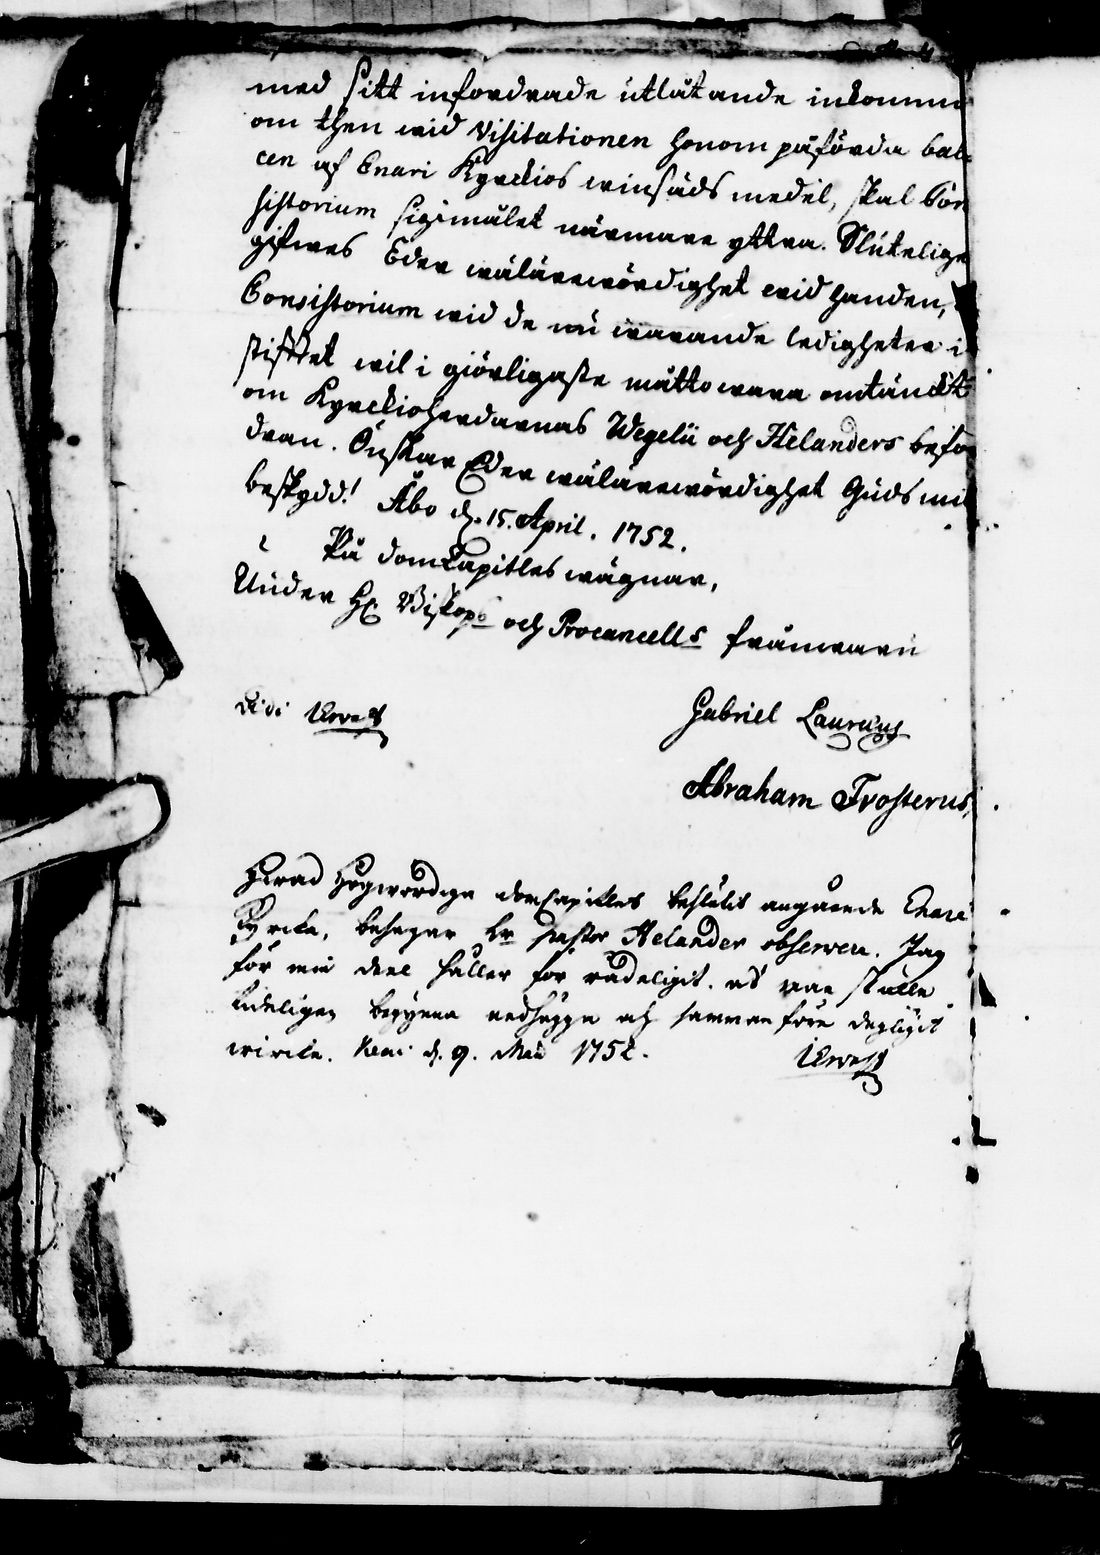 med sitt infordrade utlåtande inkomme
om then wid Visitationen honom påförda bal-
cen af Enari Kyrckios winsäds medel, skal Con
sistorium sigimålet närmare yttra. Slutelige
gifwes Eder wälärewördighet wid handen,
Consistorium wid de nu warande ledigheter i
stifftet wil i giörligaste måtto wara omtänckt
om Kyrckioherdarnas Wegelii och Helanders befo
dran. Önskar Eder wälärewördighet Guds mil
beskydd! Åbo d. 15. April. 1752.
På domCapitles wägnar,
Under H Biskops och Procancells frånwaru
Gabriel Lauræus
Vidi
Abraham Frosterus
Hwad Högwördiga domCapitlet beslutit angående Enare
Kyrcka, behagar Hr Pastor Helander observera. Jag
för min deel håller för rådeligit, at man skulle
tideligen begynna nedhugga och samman föra dugligit
wircke. Kemi d. 9. Maii 1752.